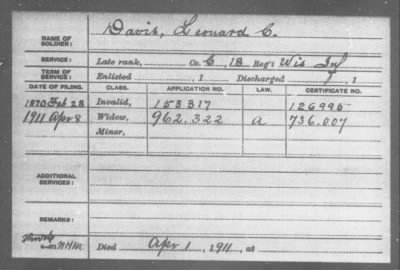 NAME OF SOLDIER: Davis, Leonard C.
SERVICE: Late rank, Co. C, 18 Reg't Wis Inf
TERM OF SERVICE: Enlisted , 1 Discharged , 1
DATE OF FILING. CLASS. APPLICATION NO. LAW. CERTIFICATE NO.
1870 Feb 28 Invalid, 153317 126995
1911 Apr 8 Widow, 962.322 a 736.007
Minor,
ADDITIONAL SERVICES:
REMARKS:
Died Apr 1, 1911, at